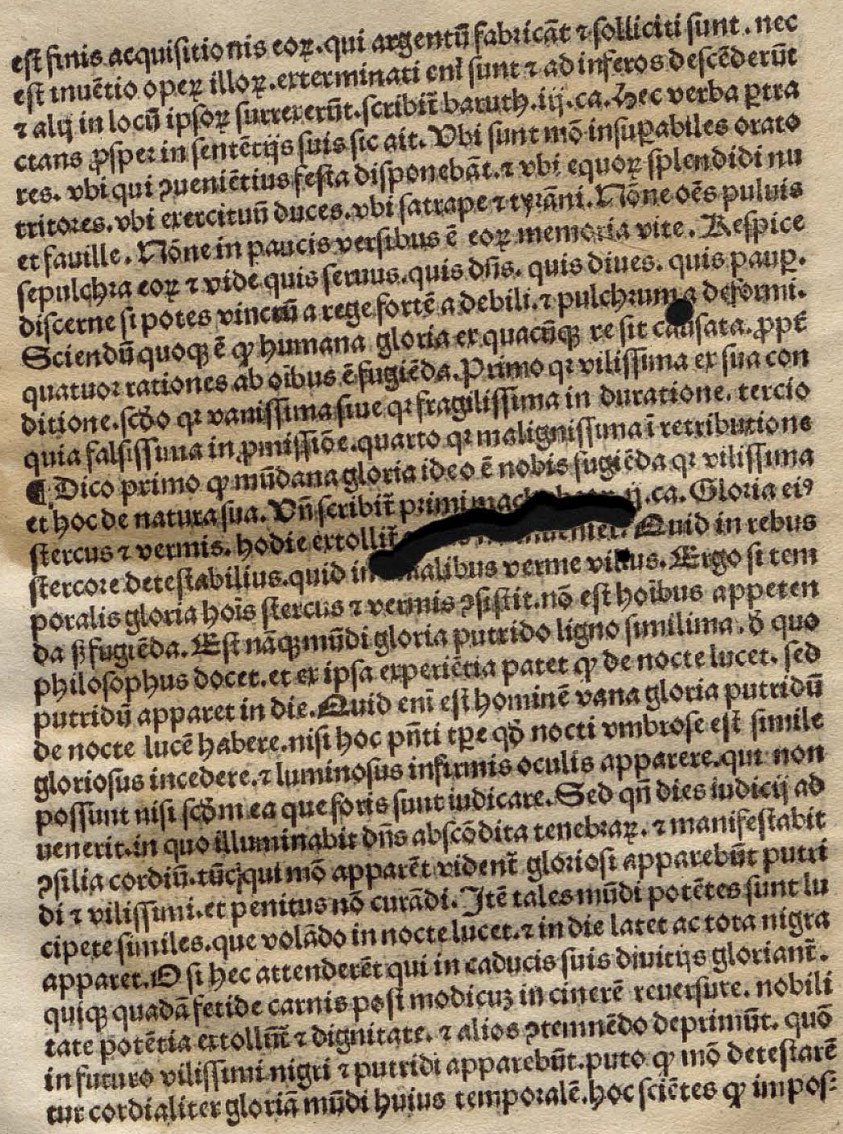 est finis acquisitionis eoꝝ.qui argentū fabricāt ⁊ solliciti sunt.nec
est inuētio opeꝝ illoꝝ.exterminati eni sunt ⁊ ad inferos descēderūt
⁊ alij in locū ipsoꝝ surrexerūt.scribit̄ baruth.iij.ca.Hec verba ꝑtra
ctans ꝓsper in sentētijs suis sic ait.Vbi sunt mō insuꝑabiles orato
res. vbi qui ꝯueniētius festa disponebāt.⁊ vbi equoꝝ splendidi nu
tritores.vbi exercituū duces.vbi satrape ⁊ tyrāni.Nōne oēs puluis
et fauille. Nōne in paucis versibus ē eoꝝ memoria vite. Respice
sepulchra eoꝝ ⁊ vide quis seruus.quis dn̄s. quis diues. quis pauꝑ.
discerne si potes vinctū a rege fortē a debili.⁊ pulchrum a deformi.
Sciendū quoqꝫ ē ꝙ humana gloria ex quacūqꝫ re sit causata.ꝓpt̄
quatuor rationes ab oībus ē fugiēda.Primo qꝛ vilissima ex sua con
ditione.scḋo qꝛ vanissima siue qꝛ fragilissima in duratione. tercio
quia falsissima in ꝓmissiōe.quarto qꝛ malignissima ī retributione
¶ Dico primo ꝙ mūdana gloria ideo ē nobis fugiēda qꝛ vilissima
et hoc de natura sua. Vn̄ scribit̄ primi ij.ca. Gloria eiꝰ
stercus ⁊ vermis. hodie extollit̄ Quid in rebus
stercore detestabilius.quid in verme vilius. Ergo si tem
poralis gloria hoīs stercus ⁊ vermis ꝯsistit.nō est hoībus appeten
da sꝫ fugiēda. Est nāqꝫ mūdi gloria putrido ligno similima. ꝺ̄ quo
philosophus docet.et ex ipsa experiētia patet ꝙ de nocte lucet. sed
putridū apparet in die.Quid eni est hominē vana gloria putridū
de nocte lucē habere.nisi hoc pn̄ti tꝑe qḋ nocti vmbrose est simile
gloriosus incedere.⁊ luminosus infirmis oculis apparere.qui non
possunt nisi scḋm ea que foris sunt iudicare.Sed qn̄ dies iudicij ad
uenerit.in quo illuminabit dn̄s abscōdita tenebraꝝ. ⁊ manifestabit
ꝯsilia cordiū.tūc qui mō apparēt vident̄ gloriosi apparebūt putri
di ⁊ vilissimi.et penitus nō curādi. Itē tales mūdi potētes sunt lu
cipete similes.que volādo in nocte lucet.⁊ in die latet ac tota nigra
apparet.O si hec attenderēt qui in caducis suis diuitijs gloriant̄.
quiqꝫ quadā fetide carnis post modicuꝫ in cinerē reuersure. nobili
tate potētia extollūt̄ ⁊ dignitate. ⁊ alios ꝯtemnēdo deprimūt. quō
in futuro vilissimi nigri ⁊ putridi apparebūt.puto ꝙ mō detestarē
tur cordialiter gloriā mūdi huius temporalē.hoc sciētes ꝙ impos⸗